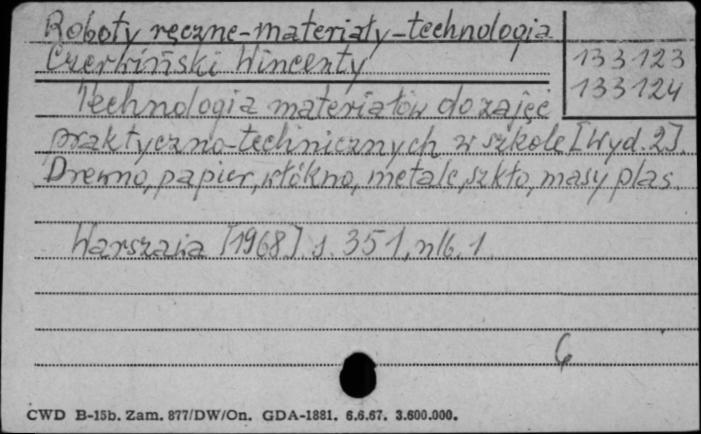 Roboty ręczne-materiały-technologia
Czerwiński Wincenty
133123
133124
Technologia materiałów do zajęć
praktyczno-technicznych w szkole [Wyd. 2].
Drewno, papier, włókno, metale, szkło, masy plas.
Warszawa [1968]. s. 351, nlb. 1
CWD B-15b. Zam. 877/DW/On. GDA-1881. 6.6.67. 3.600.000.